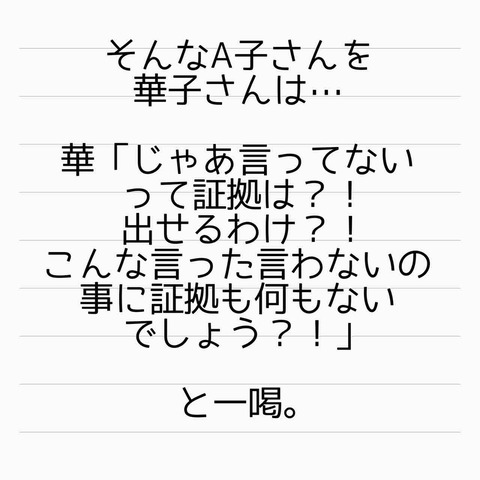 そんなA子さんを
華子さんは…
華「じゃあ言ってない
って証拠は？！
出せるわけ？！
こんな言った言わないの
事に証拠も何もない
でしょう？！」
と一喝。